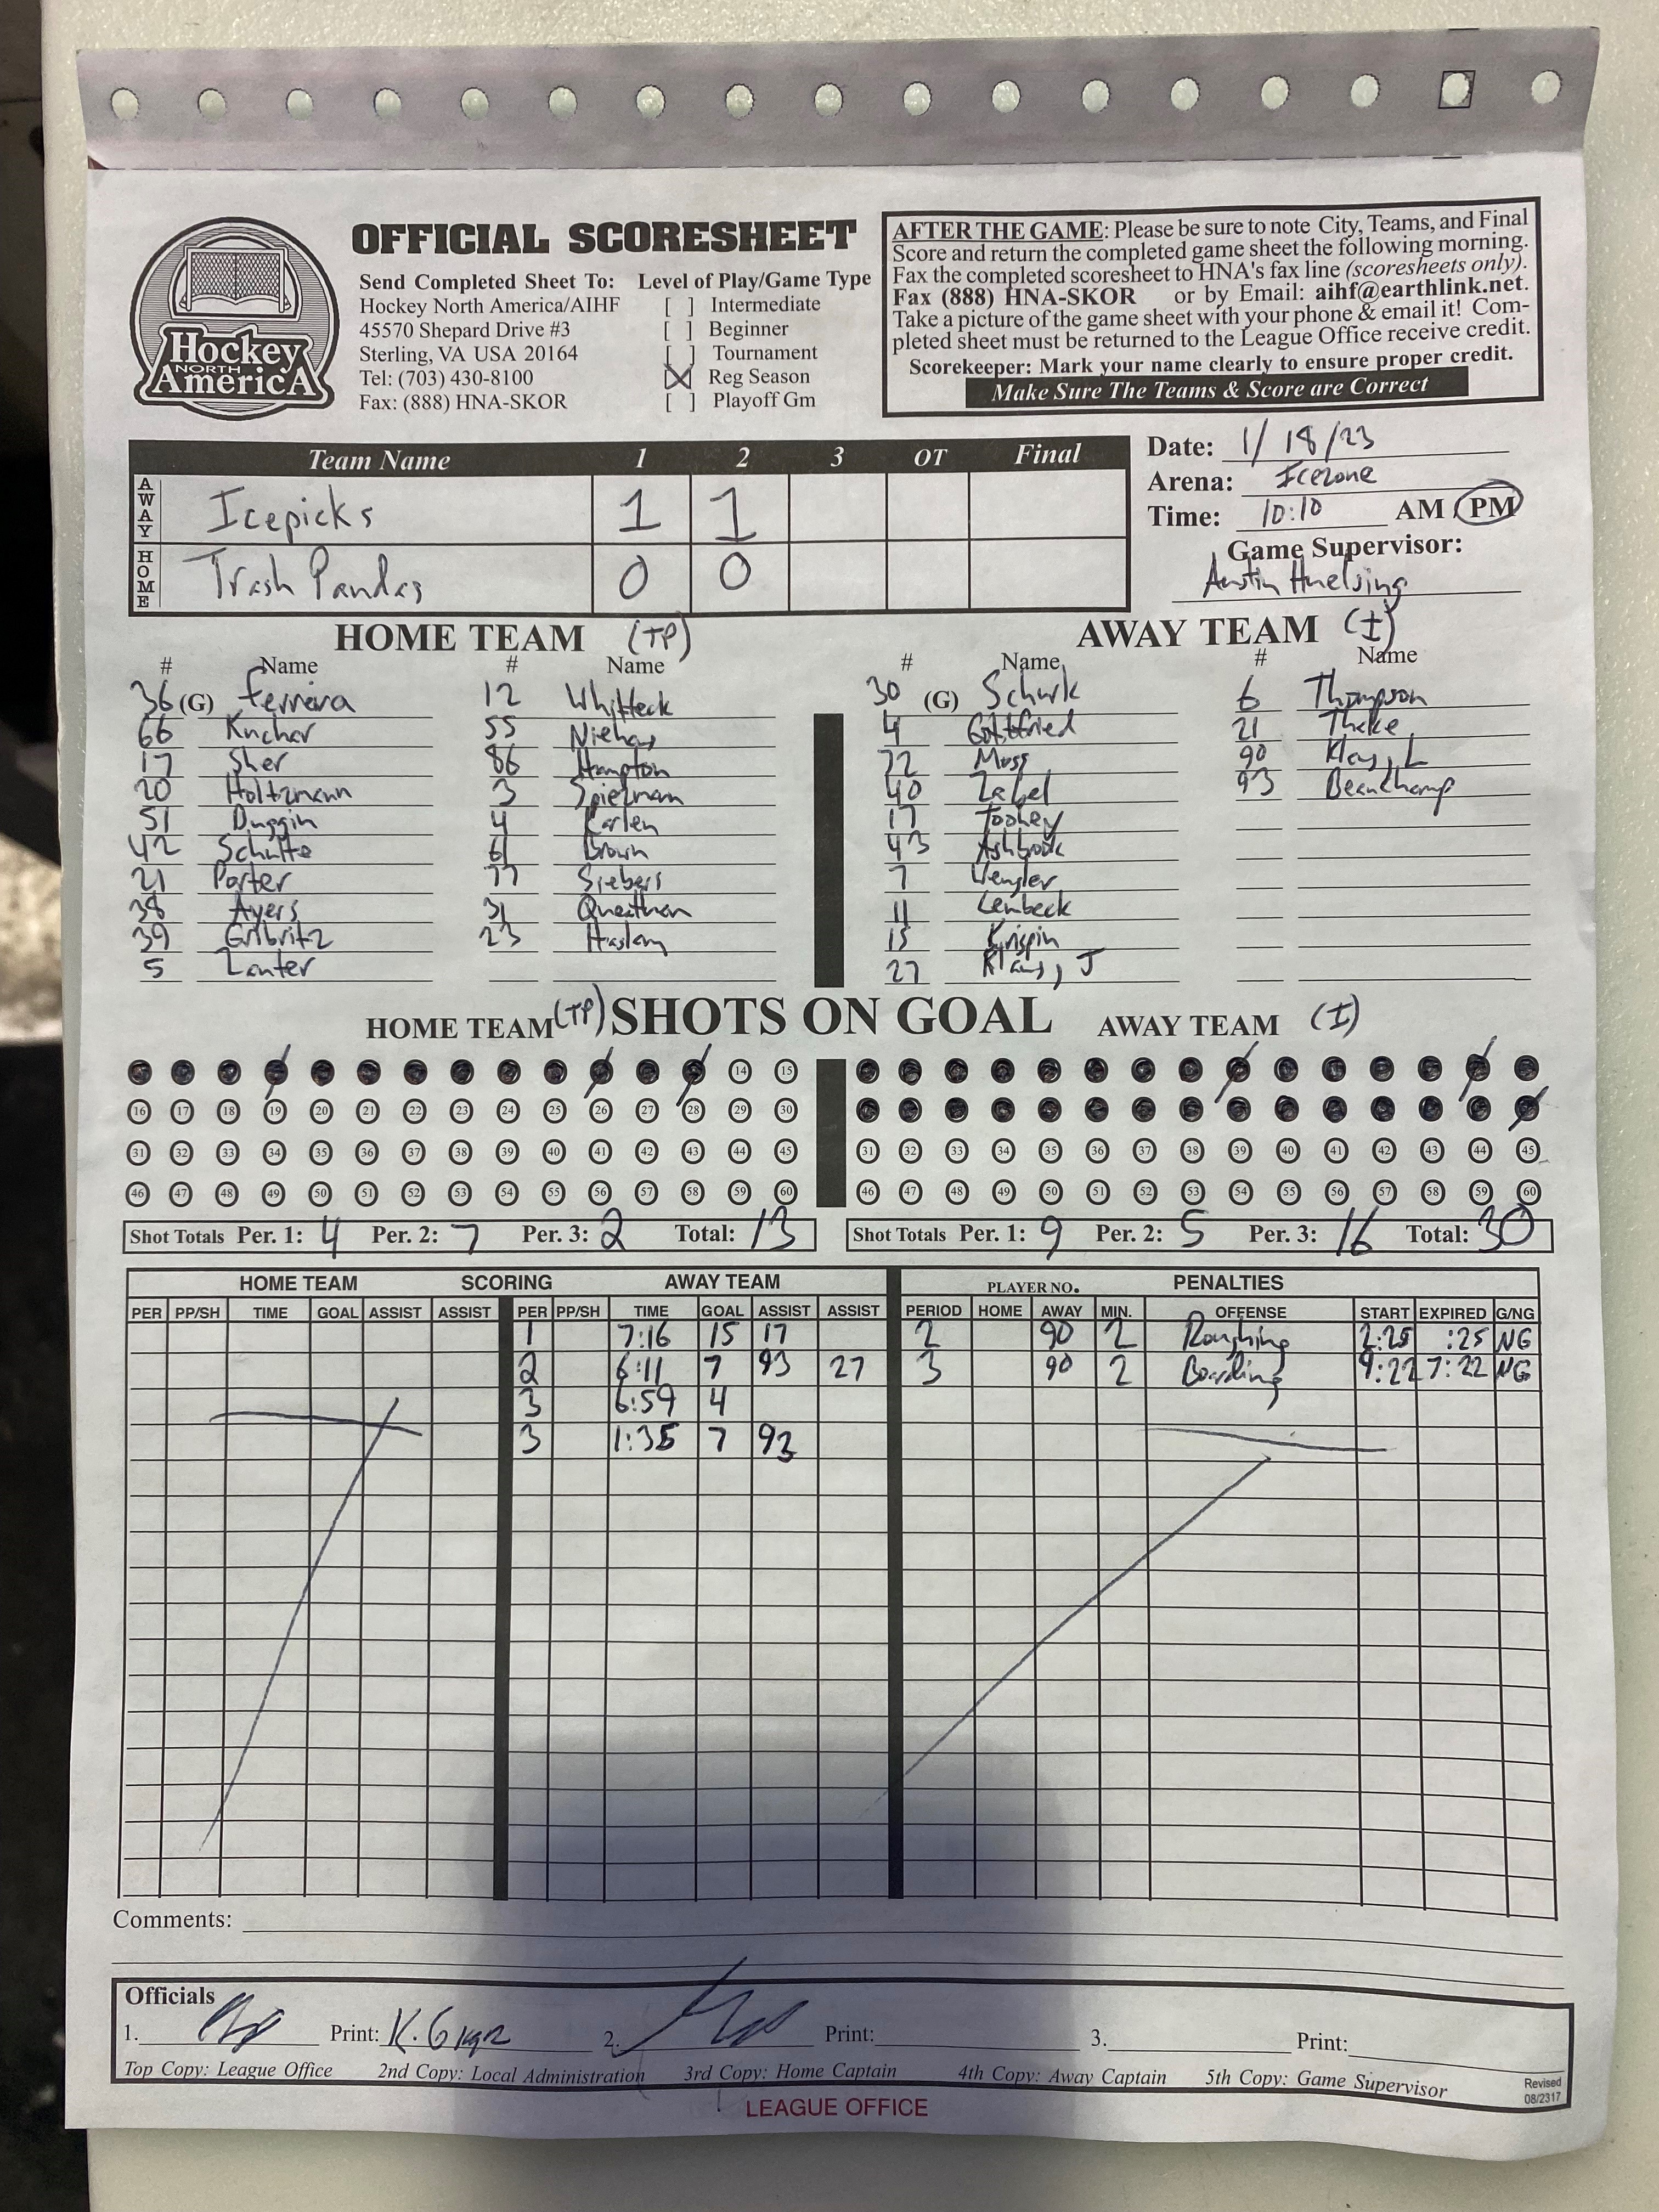 OFFICIAL SCORESHEET
Hockey
NORTH
AmericA
Send Completed Sheet To:
Hockey North America/AIHF
45570 Shepard Drive #3
Sterling, VA USA 20164
Tel: (703) 430-8100
Fax: (888) HNA-SKOR
Level of Play/Game Type
[ ] Intermediate
[ ] Beginner
[ ] Tournament
[X] Reg Season
[ ] Playoff Gm
AFTER THE GAME: Please be sure to note City, Teams, and Final
Score and return the completed game sheet the following morning.
Fax the completed scoresheet to HNA's fax line (scoresheets only).
Fax (888) HNA-SKOR or by Email: aihf@earthlink.net.
Take a picture of the game sheet with your phone & email it! Com-
pleted sheet must be returned to the League Office receive credit.
Scorekeeper: Mark your name clearly to ensure proper credit.
Make Sure The Teams & Score are Correct
Team Name 1 2 3 OT Final
AWAY Icepicks 1 1
HOME Trash Pandas 0 0
Date: 1/18/23
Arena: Icezone
Time: 10:10 AM PM
Game Supervisor:
Austin Huelsing
HOME TEAM (TP)
# Name # Name
36 (G) Ferrera 12 Whitteck
66 Kuchar 55 Niehaus
17 Sher 86 Hampton
20 Holtzmann 3 Spielman
51 Duggin 4 Karlen
42 Schulte 61 Brown
21 Porter 77 Siebers
38 Ayers 31 Queathem
39 Gribritz 23 Haslam
5 Lanter
AWAY TEAM (I)
# Name # Name
30 (G) Schurk 6 Thompson
4 Gottfried 21 Theke
72 Moss 90 Klaus, L
40 Zabel 93 Beauchamp
17 Toohey
43 Ashbrook
7 Wengler
11 Lembeck
15 Krispin
27 Klaus, J
HOME TEAM (TP) SHOTS ON GOAL AWAY TEAM (I)
14 15
16 17 18 19 20 21 22 23 24 25 26 27 28 29 30
31 32 33 34 35 36 37 38 39 40 41 42 43 44 45 31 32 33 34 35 36 37 38 39 40 41 42 43 44 45
46 47 48 49 50 51 52 53 54 55 56 57 58 59 60 46 47 48 49 50 51 52 53 54 55 56 57 58 59 60
Shot Totals Per. 1: 4 Per. 2: 7 Per. 3: 2 Total: 13 Shot Totals Per. 1: 9 Per. 2: 5 Per. 3: 16 Total: 30
HOME TEAM SCORING AWAY TEAM PLAYER NO. PENALTIES
PER PP/SH TIME GOAL ASSIST ASSIST PER PP/SH TIME GOAL ASSIST ASSIST PERIOD HOME AWAY MIN. OFFENSE START EXPIRED G/NG
1 7:16 15 17 2 90 2 Roughing 2:25 :25 NG
2 6:11 7 93 27 3 90 2 Boarding 9:22 7:22 NG
3 6:59 4
3 1:35 7 93
Comments:
Officials
1. Print: 2. Print: 3. Print:
Top Copy: League Office 2nd Copy: Local Administration 3rd Copy: Home Captain 4th Copy: Away Captain 5th Copy: Game Supervisor
Revised
08/2317
LEAGUE OFFICE